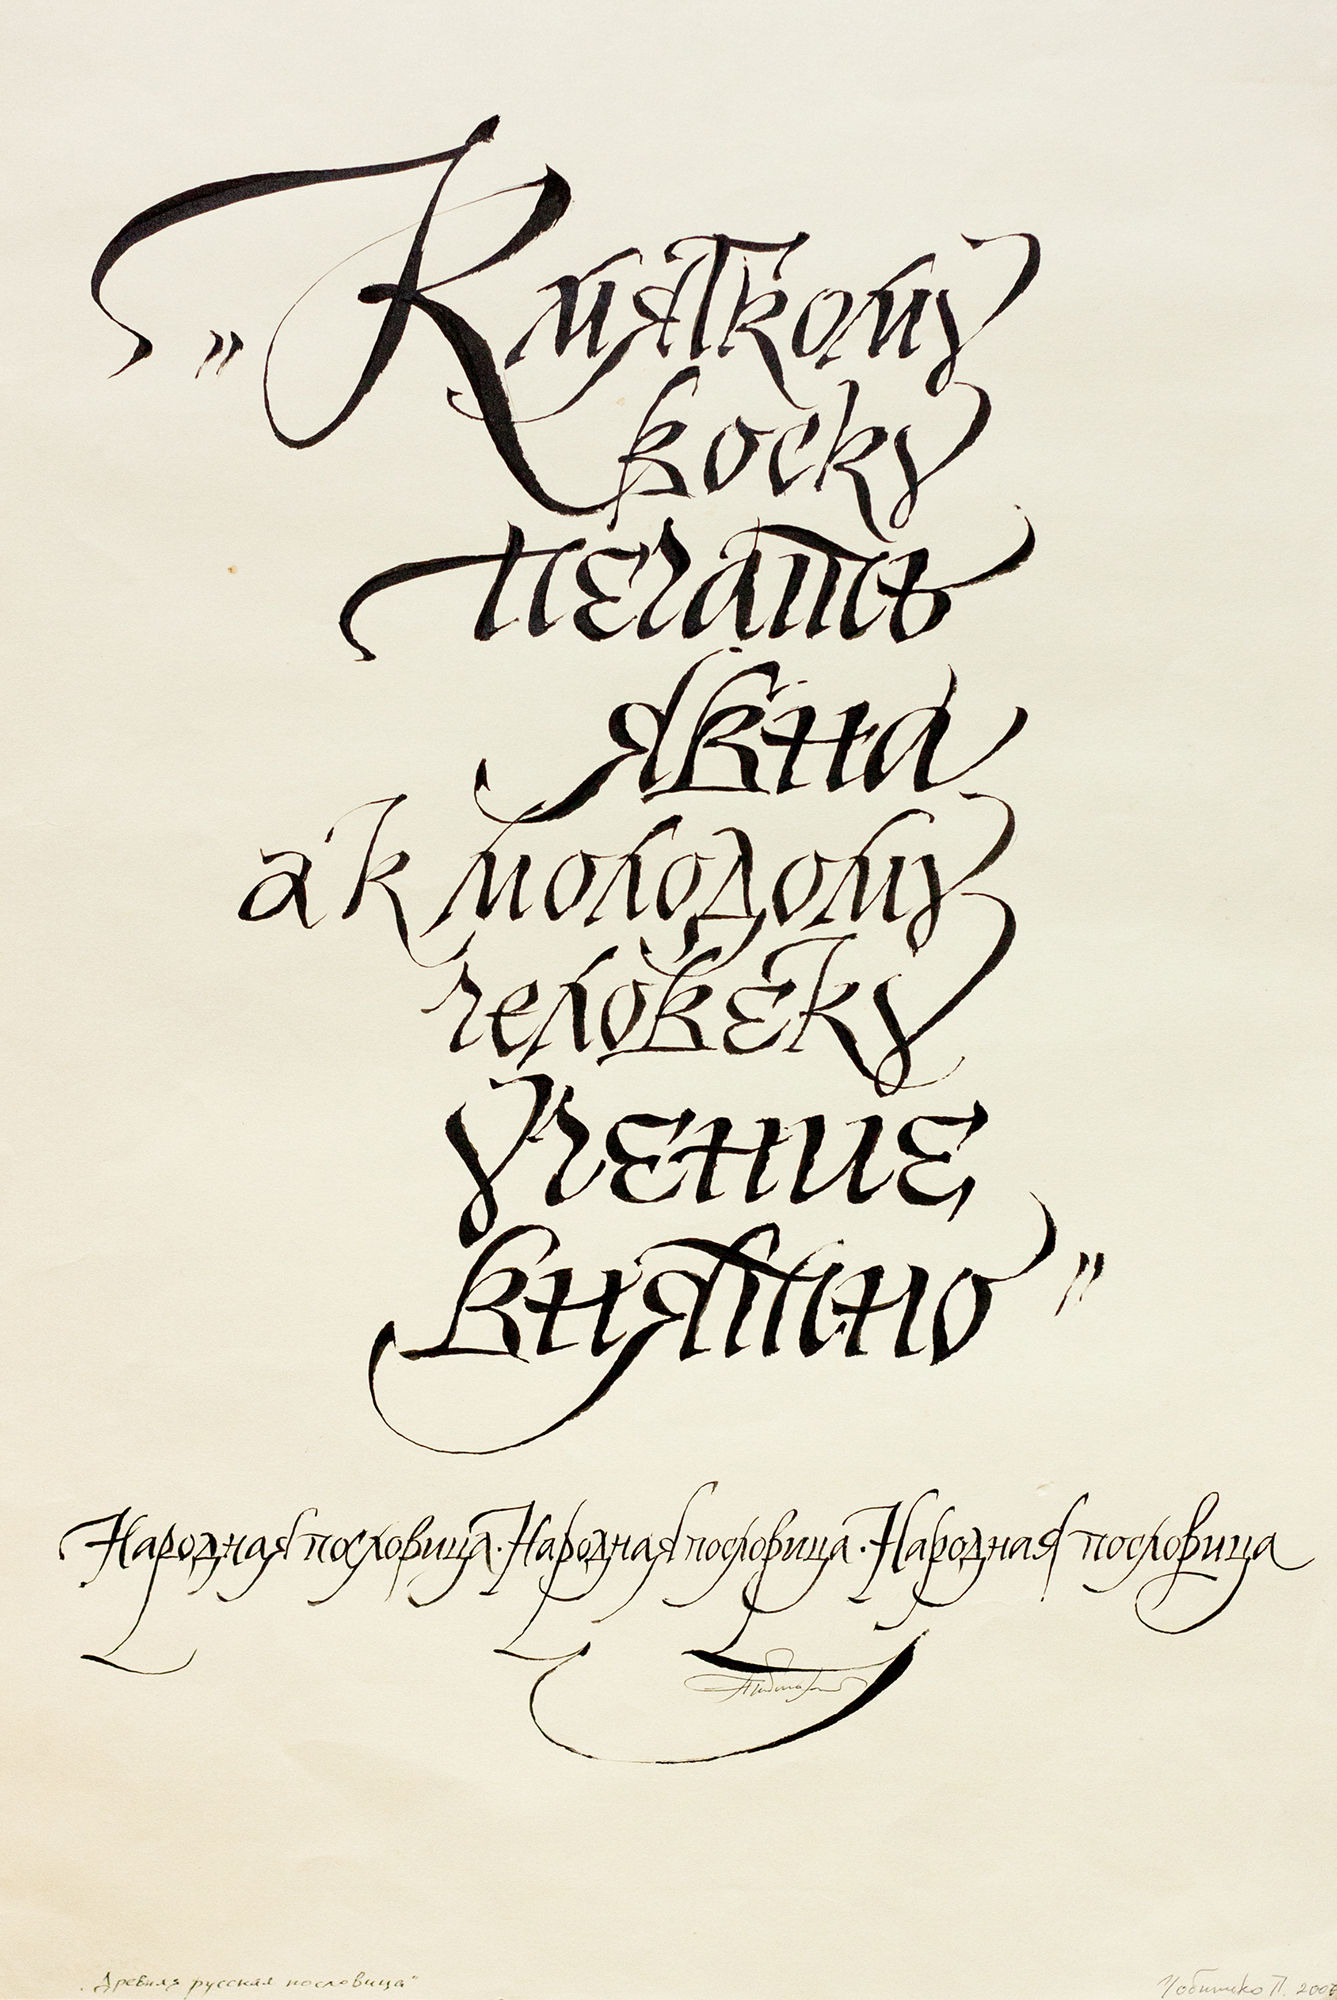 „К мягкому
воску
печать
явна
а к молодому
человеку
учение
внятно”
Народная пословица · Народная пословица · Народная пословица
„Древняя русская пословица“
Чобитько П.